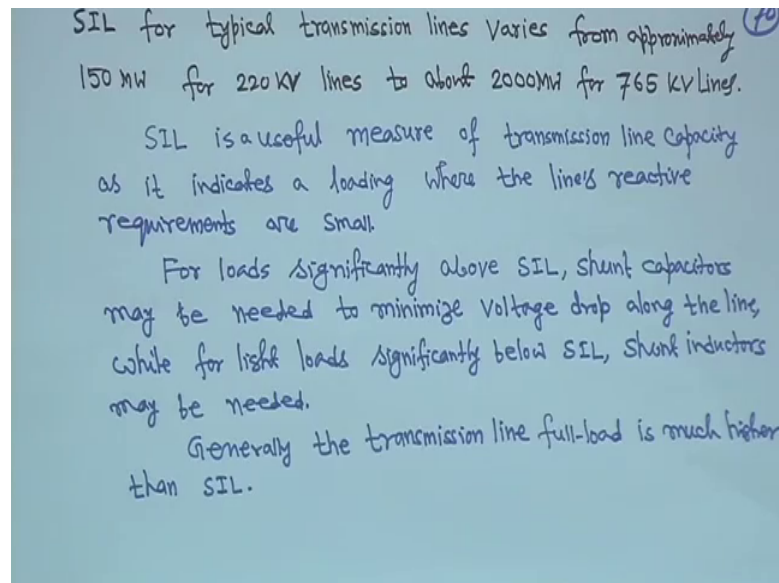 SIL for typical transmission lines varies from approximately
150 MW for 220 KV lines to about 2000MW for 765 KV Lines.
SIL is a useful measure of transmission line capacity
as it indicates a loading where the line's reactive
requirements are small.
For loads significantly above SIL, shunt capacitors
may be needed to minimize voltage drop along the line,
while for light loads significantly below SIL, shunt inductors
may be needed.
Generally the transmission line full-load is much higher
than SIL.